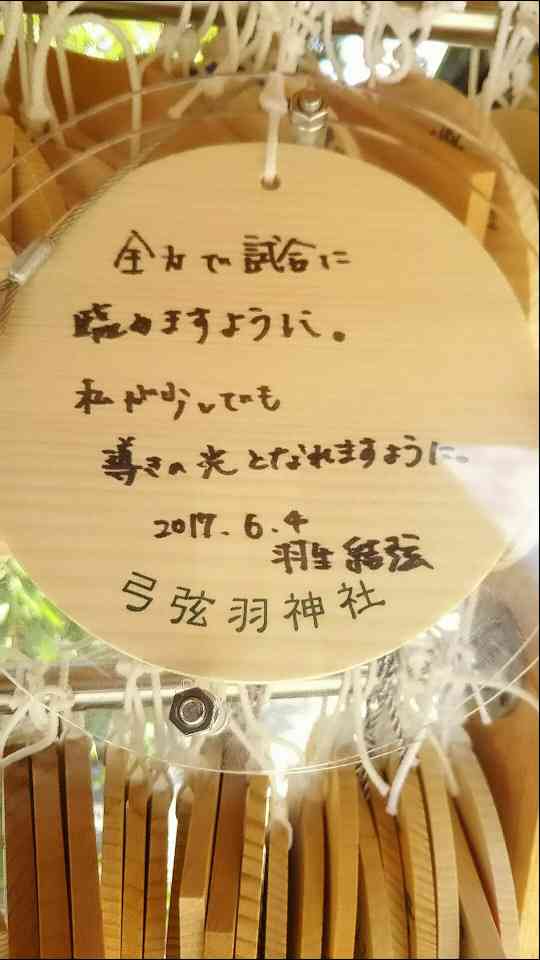 全力で試合に
臨めますように。
私が少しでも
導きの光となれますように。
2017.6.4
羽生結弦
弓弦羽神社